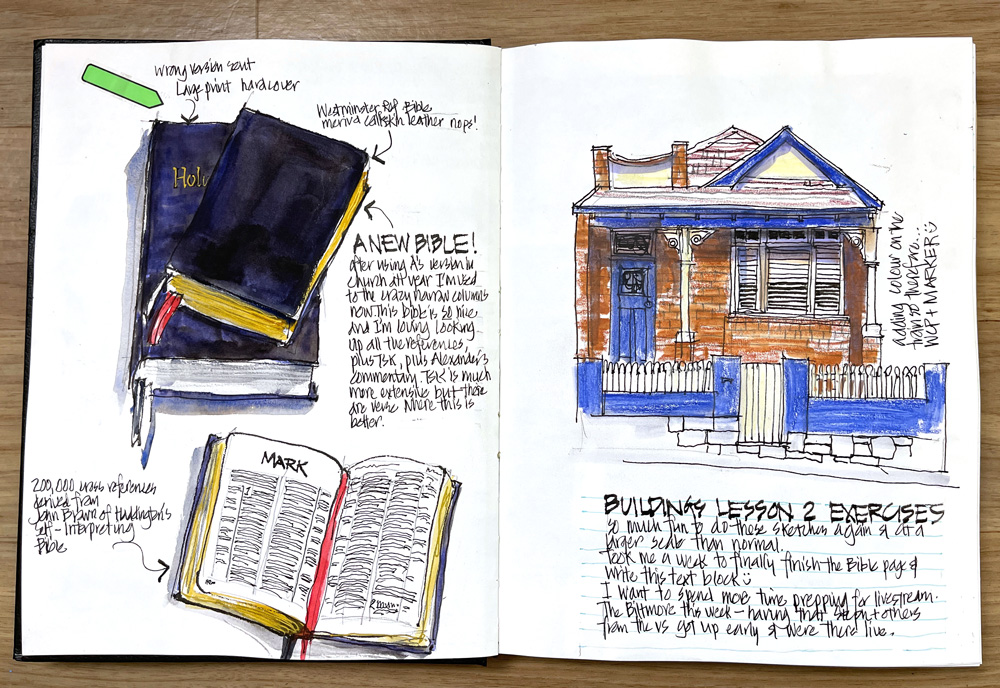 wrong version sent
Large print hardcover
Westminster Ref Bible
calfskin leather nops!
Holy
A NEW BIBLE!
after using A's version in
church all year I'm used
to the crazy narrow columns
now. This bible is so nice
and I'm loving looking
up all the references,
plus TSK, plus Alexander's
commentary. TSK is much
more extensive but there
are verse where this is
better.
MARK
200,000 cross references
derived from
John Brown of Haddington's
Self-Interpreting
Bible
adding colour on the
train so therefore...
WCP + MARKER
BUILDINGS LESSON 2 EXERCISES
so much fun to do these sketches again & at a
larger scale than normal.
Took me a week to finally finish the Bible page &
write this text block
I want to spend more time prepping for livestream.
The Biltmore this week - having that + others
from the vs got up early & were there live.